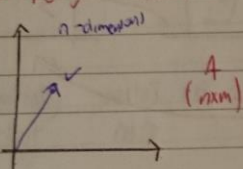 n-dimensions
v
A
(nxm)